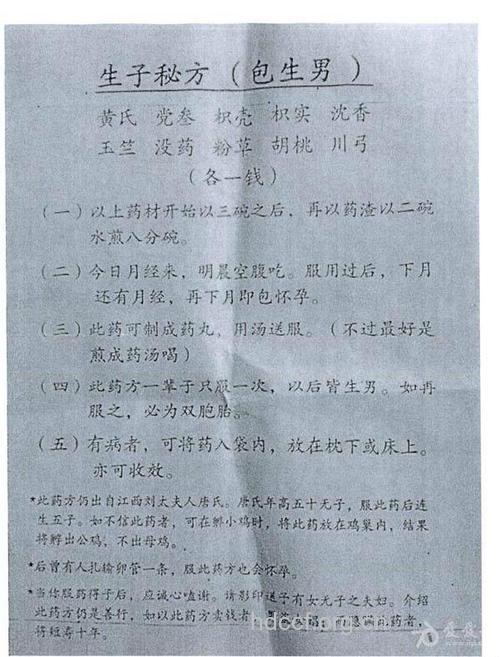 生子秘方（包生男）
黄氏 党叁 枳壳 枳实 沈香
玉竺 没药 粉草 胡桃 川弓
（各一钱）
（一）以上药材开始以三碗之后，再以药渣以二碗
水煎八分碗。
（二）今日月经来，明晨空腹吃。服用过后，下月
还有月经，再下月即包怀孕。
（三）此药可制成药丸，用汤送服。（不过最好是
煎成药汤喝）
（四）此药方一辈子只服一次，以后皆生男。如再
服之，必为双胞胎。
（五）有病者，可将药入袋内，放在枕下或床上。
亦可收效。
*此药方仍出自江西刘太夫人唐氏。唐氏年高五十无子，服此药后连
生五子。如不信此药者，可在孵小鸡时，将此药放在鸡巢内，结果
将孵出公鸡，不出母鸡。
*后曾有人扎输卵管一条，服此药方也会怀孕。
*当你服药得子后，应诚心嗑谢。请影印送子有女无子之夫妇。介绍
此药方仍是善行，如以此药方卖钱者，
药者，
将短寿十年。
爱爱